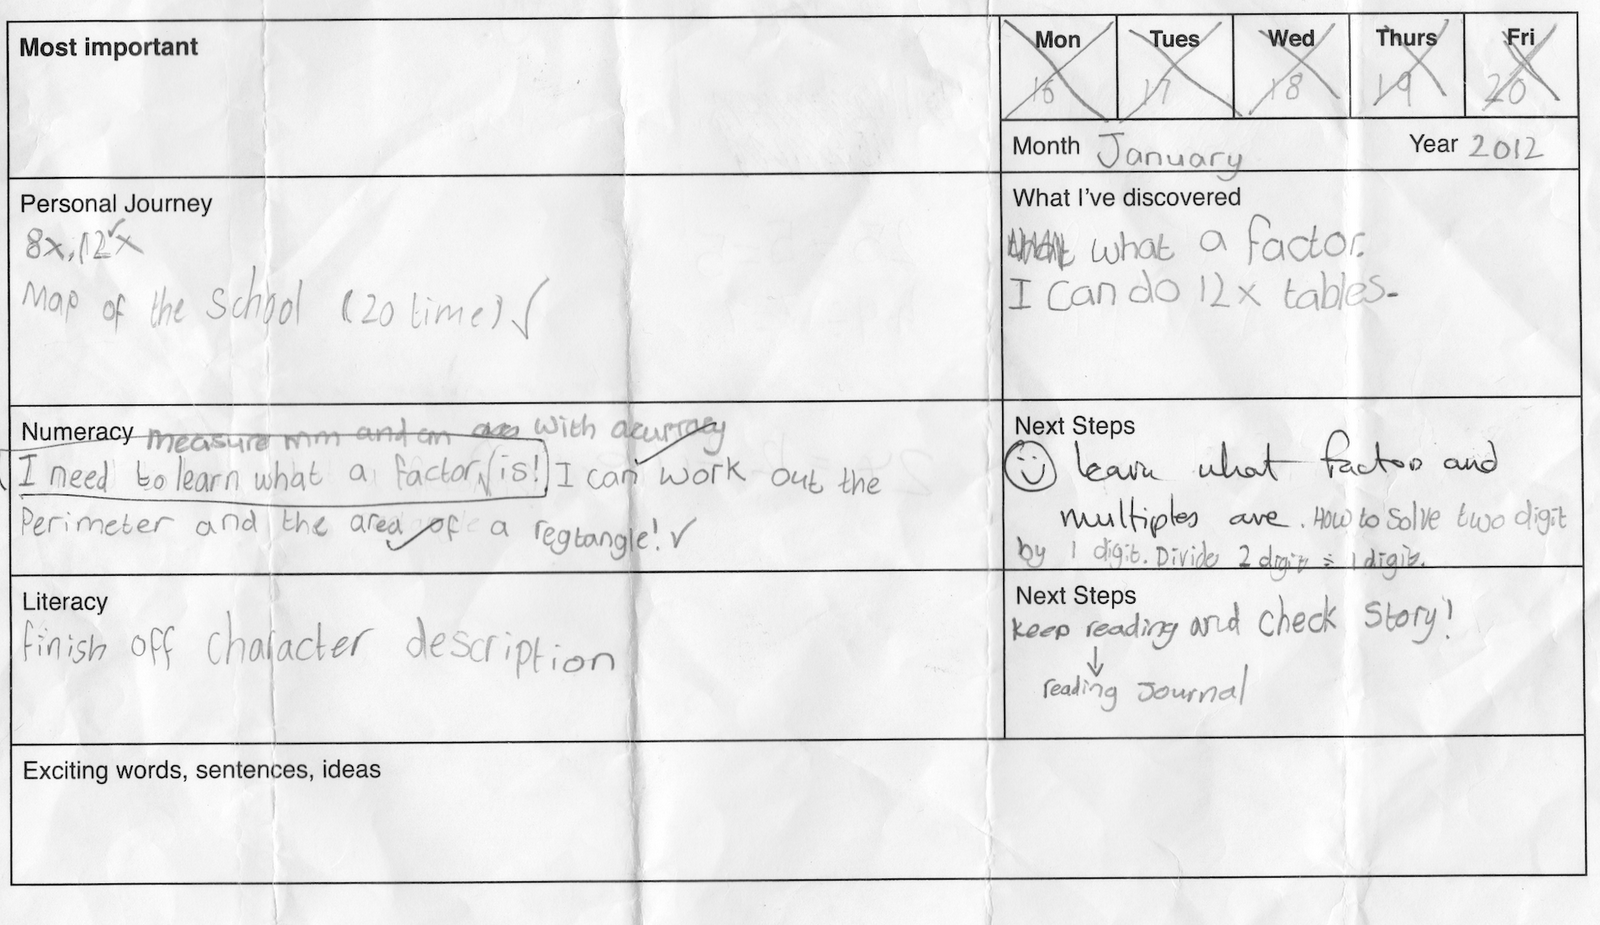 Most important
Mon Tues Wed Thurs Fri
16 17 18 19 20
Month January Year 2012
Personal Journey
8x, 12x
Map of the school (20 time)
What I've discovered
what a factor.
I can do 12x tables.
Numeracy measure mm and cm with acurracy
I need to learn what a factor is! I can work out the
Perimeter and the area of a regtangle!
Next Steps
learn what factors and
multiples are. How to solve two digit
by 1 digit. Divide 2 digit ÷ 1 digit.
Literacy
finish off character description
Next Steps
keep reading and check story!
reading journal
Exciting words, sentences, ideas